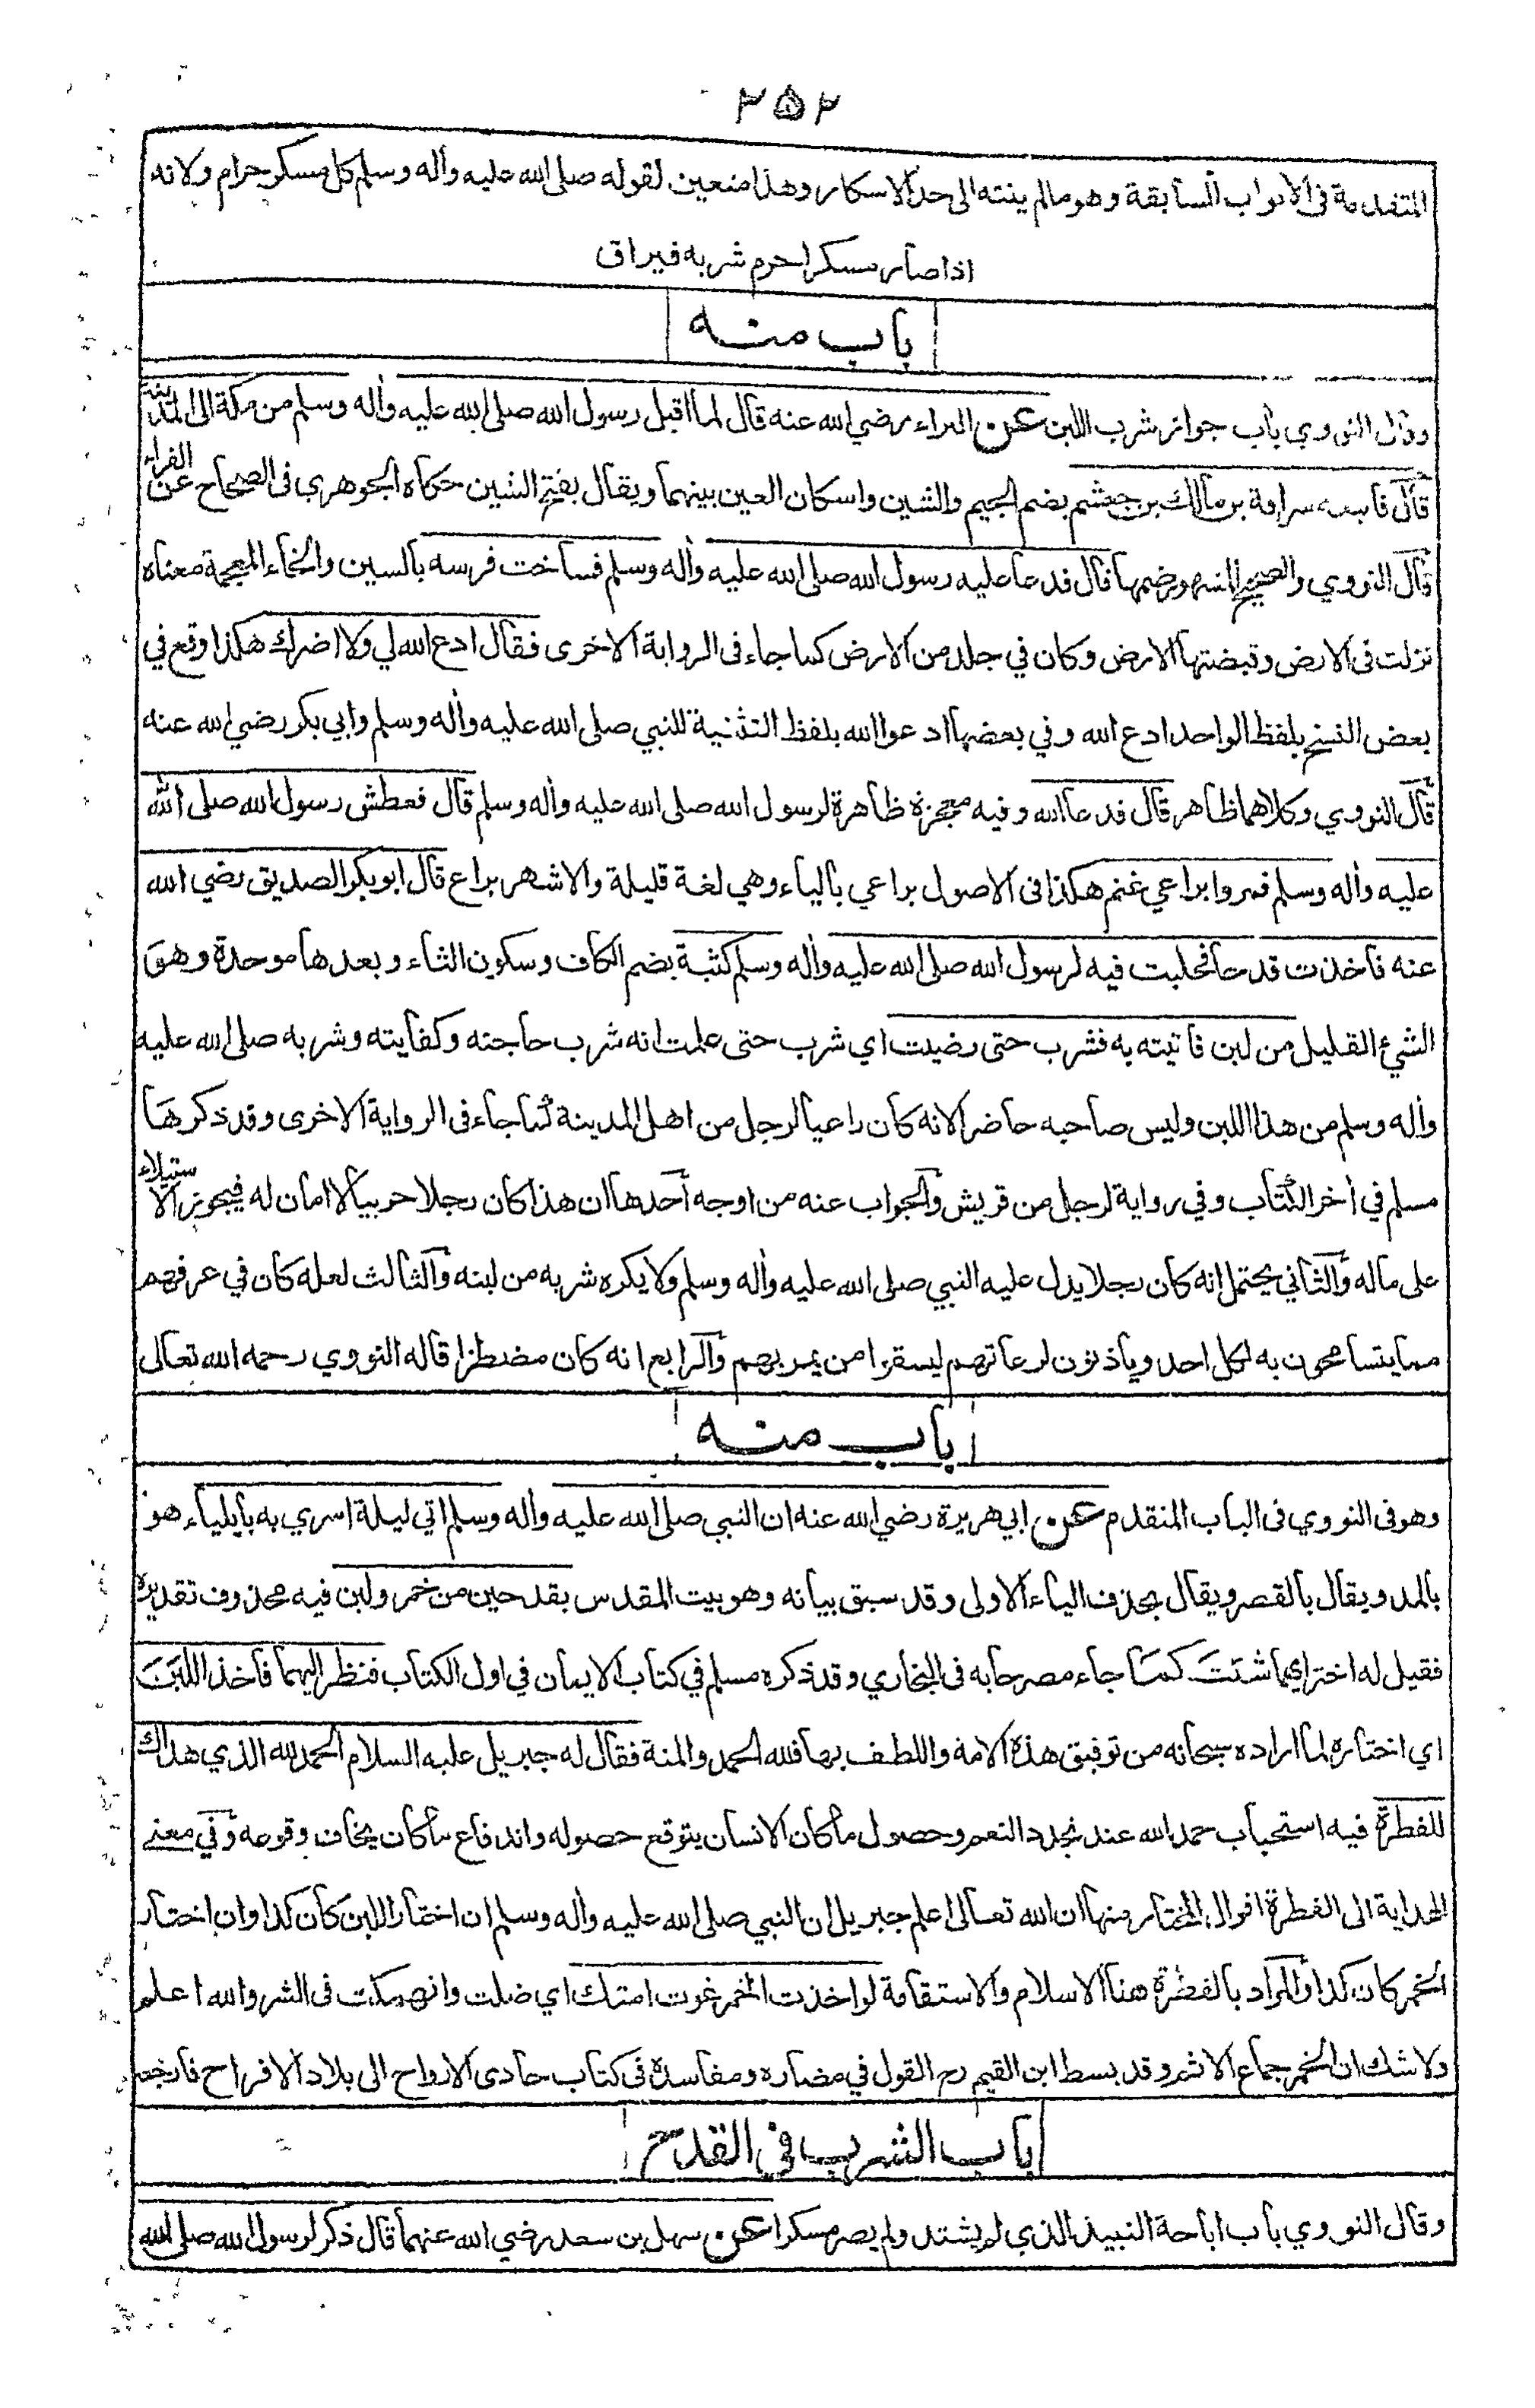 ٢٥٢
المتقدمة فى الابواب السابقة وهو مالم ينته الى حد الاسكار وهذا متعين لقوله صلى الله عليه وأله وسلم كل مسكر حرام ولانه
اذا صار مسكرا حرم شربه فيراق
باب منه
وقال النووي باب جواز شرب اللبن عن البراء رضي الله عنه قال لما اقبل رسول الله صلى الله عليه وأله وسلم من مكة الى المدينة
قال فاتبعه سراقة بن مالك بن جعشم بضم الجيم والشين واسكان العين بينهما ويقال بفتح الشين حكاه الجوهري فى الصحاح عن الفراء
قال النووي والصحيح المشهور ضمها قال فدعا عليه رسول الله صلى الله عليه وأله وسلم فساخت فرسه بالسين والخاء المعجمة معناه
نزلت فى الارض وقبضتها الارض وكان في جلد من الارض كما جاء فى الرواية الاخرى فقال ادع الله لي ولا اضرك هكذا وقع في
بعض النسخ بلفظ الواحد ادع الله وفي بعضها ادعوا الله بلفظ التثنية للنبي صلى الله عليه وأله وسلم وابي بكر رضي الله عنه
قال النووي وكلاهما ظاهر قال فدعا الله وفيه معجزة ظاهرة لرسول الله صلى الله عليه وأله وسلم قال فعطش رسول الله صلى الله
عليه وأله وسلم فمروا براعي غنم هكذا فى الاصول براعي بالياء وهي لغة قليلة والاشهر براع قال ابو بكر الصديق رضي الله
عنه فاخذت قدحا فحلبت فيه لرسول الله صلى الله عليه وأله وسلم كثبة بضم الكاف وسكون الثاء وبعدها موحدة وهو
الشئ القليل من لبن فاتيته به فشرب حتى رضيت اي شرب حتى علمت انه شرب حاجته وكفايته وشربه صلى الله عليه
وأله وسلم من هذا اللبن وليس صاحبه حاضرا لانه كان راعيا لرجل من اهل المدينة كما جاء فى الرواية الاخرى وقد ذكرها
مسلم في أخر الكتاب وفي رواية لرجل من قريش والجواب عنه من اوجه أحدها ان هذا كان رجلا حربيا لا امان له فيجوز الاستيلاء
على ماله والثاني يحتمل انه كان رجلا يدل عليه النبي صلى الله عليه وأله وسلم ولا يكره شربه من لبنه والثالث لعله كان في عرفهم
مما يتسامحون به لكل احد وياذنون لرعاتهم ليسقوا من يمر بهم والرابع انه كان مضطرا قاله النووي رحمه الله تعالى
باب منه
وهو فى النووي فى الباب المتقدم عن ابي هريرة رضي الله عنه ان النبي صلى الله عليه وأله وسلم اتي ليلة اسري به بايلياء هو
بالمد ويقال بالقصر ويقال بحذف الياء الاولى وقد سبق بيانه وهو بيت المقدس بقدحين من خمر ولبن فيه محذوف تقديره
فقيل له اختر ايهما شئت كما جاء مصرحا به فى البخاري وقد ذكره مسلم في كتاب الايمان في اول الكتاب فنظر اليهما فاخذ اللبن
اي اختاره لما اراده سبحانه من توفيق هذه الامة واللطف بها فلله الحمد والمنة فقال له جبريل عليه السلام الحمد لله الذي هداك
للفطرة فيه استحباب حمد الله عند تجدد النعم وحصول ما كان الانسان يتوقع حصوله واندفاع ما كان يخاف وقوعه وفي معنى
الهداية الى الفطرة اقوال المختار منها ان الله تعالى اعلم جبريل ان النبي صلى الله عليه وأله وسلم ان اختار اللبن كان كذا وان اختار
الخمر كان كذا والمراد بالفطرة هنا الاسلام والاستقامة لو اخذت الخمر غوت امتك اي ضلت وانهمكت فى الشر والله اعلم
ولا شك ان الخمر جماع الاثم وقد بسط ابن القيم رح القول في مضاره ومفاسده فى كتاب حادى الارواح الى بلاد الافراح فارجع
باب الشرب فى القدح
وقال النووي باب اباحة النبيذ الذي لم يشتد ولم يصر مسكرا عن سهل بن سعد رضي الله عنهما قال ذكر لرسول الله صلى الله